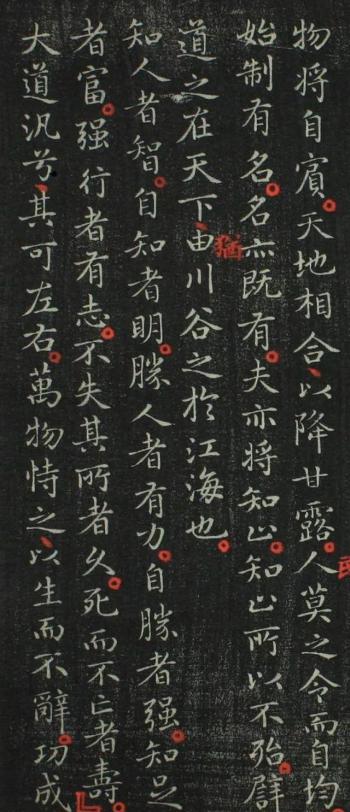 物将自賓。天地相合、以降甘露。人莫之令而自均。
始制有名。名亦既有。夫亦将知止。知止所以不殆。譬
猶
道之在天下、由川谷之於江海也。
知人者智。自知者明。勝人者有力。自勝者强。知足
者富。强行者有志。不失其所者久。死而不亡者壽。
大道汎兮、其可左右。萬物恃之、以生而不辭。功成